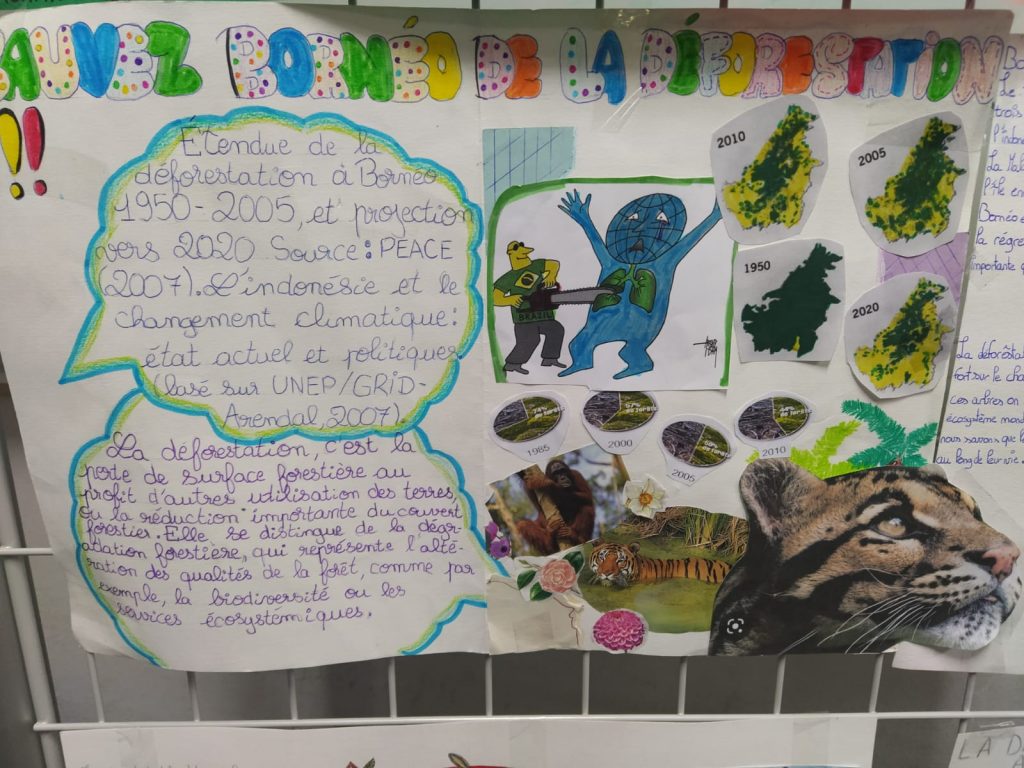 AUVEZ BORNÉO DE LA DÉFORESTATION
!!
ÉTendue de la
déforestation à Bornéo
1950-2005, et projection
vers 2020 Source: PEACE
(2007). L'indonésie et le
changement climatique:
état actuel et politiques
(basé sur UNEP/GRiD-
Arendal, 2007)
La déforestation, c'est la
perte de surface forestière au
profit d'autres utilisation des terres,
ou la réduction importante du couvert
forestier. Elle se distingue de la dégr-
adation forestière, qui représente l'alté-
ration des qualités de la forêt, comme par
exemple, la biodiversité ou les
services écosystémiques.
2010
2005
1950
2020
BRAZIL
74% de forêts
1985
57% de forêts
2000
50%
2005
44% de forêts
2010
Bo
Le
trois
l'indon
La Mal
l'île en
Bornéo e
la régre
importante q
La déforestat
fort sur le cha
ces arbres on
écosystème mond
nous savons que l
au long de leur vie.
LA D